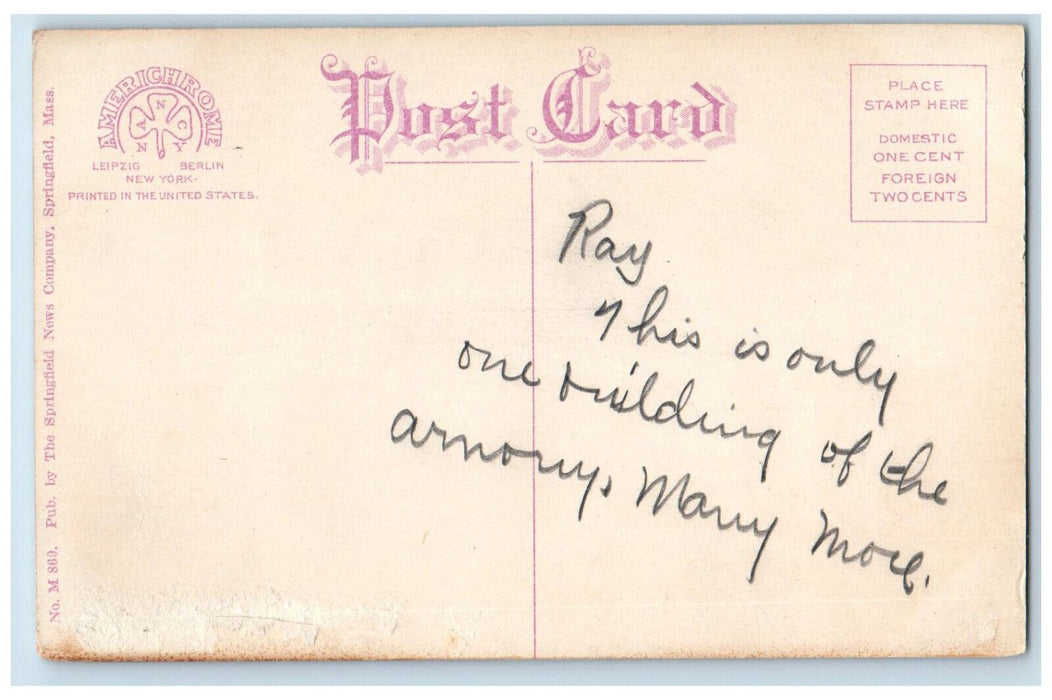 No. M 869. Pub. by The Springfield News Company, Springfield, Mass.
AMERICHROME
N
A C
N Y
LEIPZIG BERLIN
·NEW YORK·
PRINTED IN THE UNITED STATES.
Post Card
PLACE
STAMP HERE
DOMESTIC
ONE CENT
FOREIGN
TWO CENTS
Ray
This is only
one building of the
armory. Many more.